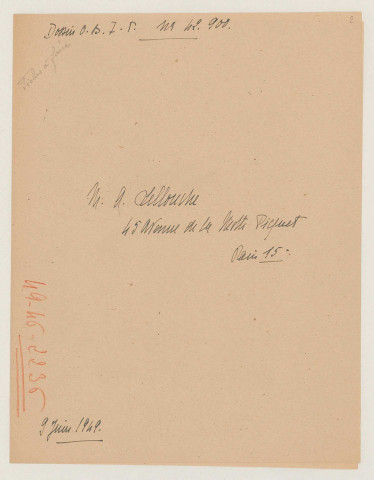 Dossier O. B. I. P. N° 42.900.
M. A. Lellouche
45 Avenue de la Motte Picquet
Paris 15e
49-46-2236
9 Juin 1949.